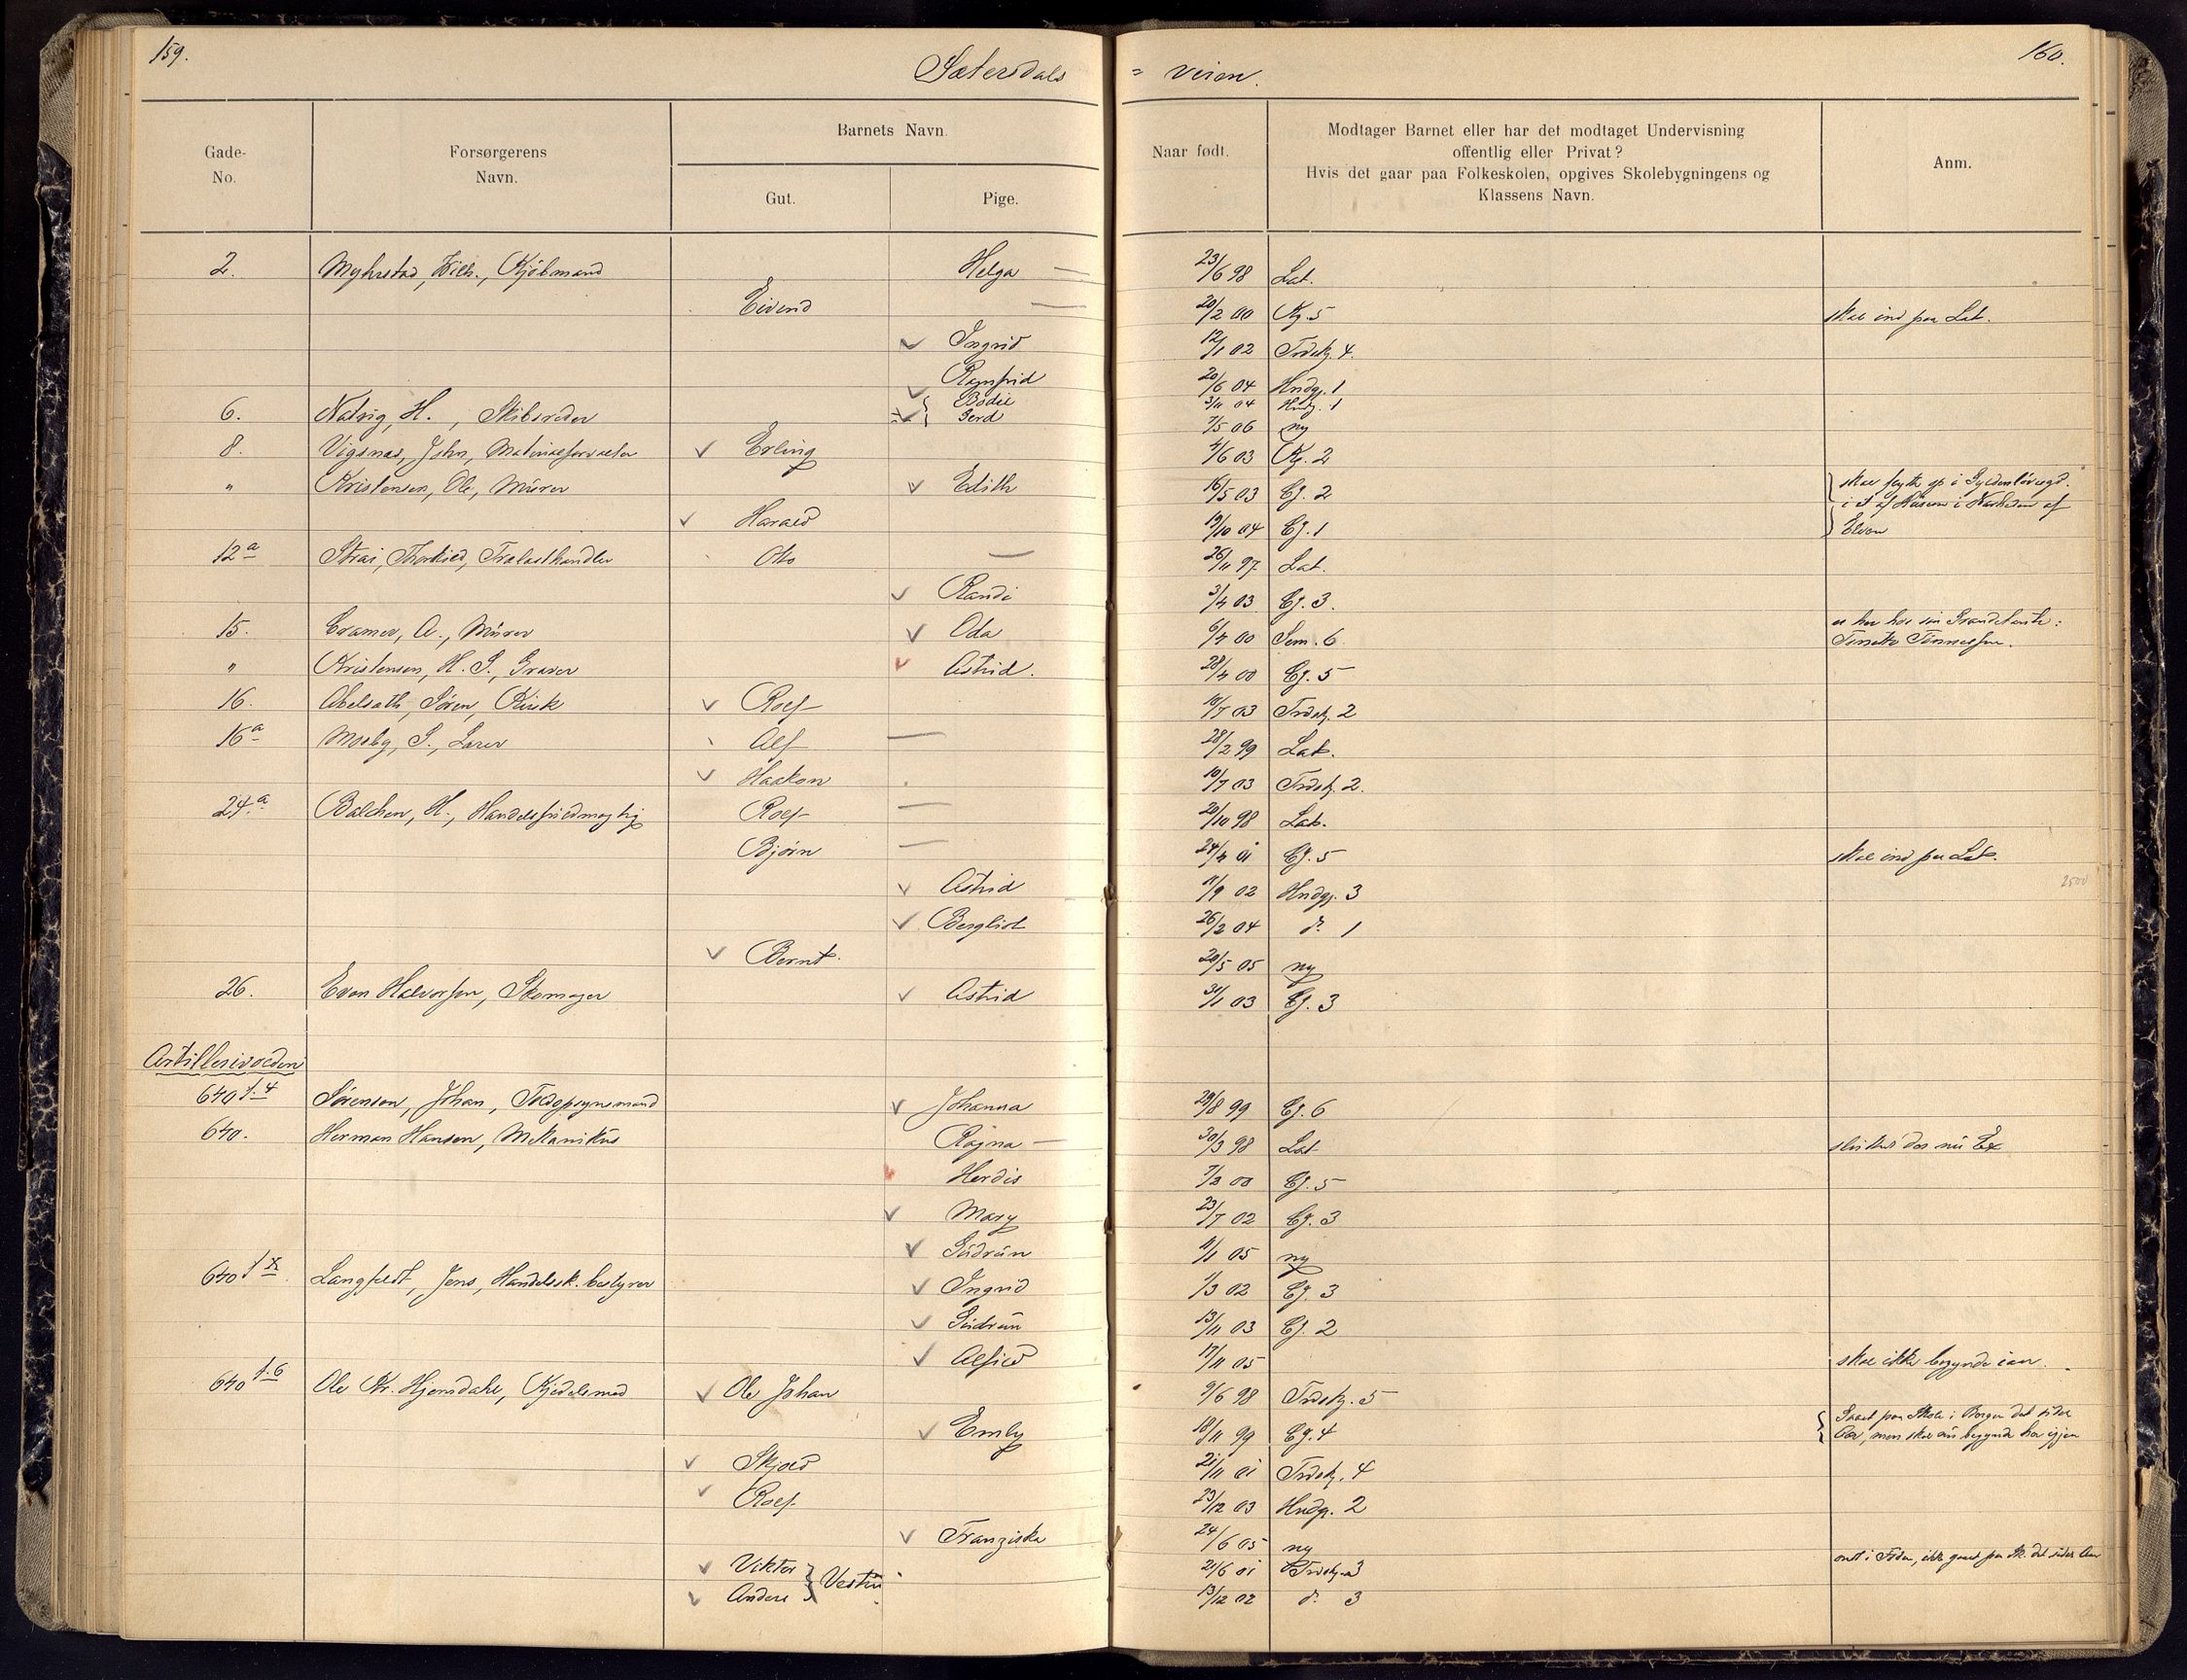 159.
Sætersdals
= veien.
160.
Gade-
No.
Forsørgerens
Navn.
Barnets Navn.
Gut.
Pige.
Naar født.
Modtager Barnet eller har det modtaget Undervisning
offentlig eller Privat?
Hvis det gaar paa Folkeskolen, opgives Skolebygningens og
Klassens Navn.
Anm.
2. Myhrstad, Vilh., Kjøbmand Helga — 23/6 98 Lat.
Eivind — 20/2 00 Kg. 5 skal ind paa Lat.
Ingrid 12/1 02 Trdskj. 4.
Ragnfrid 20/6 04 Hndgj. 1
6. Natvig, H., Skibsreder Bodil 3/11 04 Hndgj. 1
Gerd 7/5 06 ny
8. Vigsnæs, John, Materialforvalter Erling 4/6 03 Kg. 2
" Kristensen, Ole, Murer Edith 16/5 03 Eg. 2 skal flytte op i Gyldenløvesgd.
i et af Husene i Nærheden af
Harald 19/10 04 Eg. 1 Elven
12a Strai, Thorkild, Trælasthandler Otto — 26/11 97 Lat.
Randi 3/4 03 Eg. 3.
15. Cramer, A., Murer Oda 6/4 00 Sem. 6 er her hos sin Grandtante:
" Kristensen, H. S., Graver Astrid. 28/4 00 Eg. 5
16. Abelsæth, Søren, Rolf 10/7 03 Trdskj. 2
16a Mosby, S., Lærer Alf — 28/2 99 Lat.
Haakon 10/7 03 Trdskj. 2.
24a Balchen, H., Handelsfuldmægtig Rolf — 20/10 98 Lat.
Bjørn — 24/4 01 Eg. 5 skal ind paa Lat.
Astrid 11/9 02 Hndgj. 3
2500
Bergliot 26/2 04 do 1
Bernt. 20/5 05 ny
26. Even Halvorsen, Skomager Astrid 31/1 03 Eg. 3
Artillerivolden
640 f. 4 Sørensen, Johan, Toldopsynsmand Johanna 29/8 99 Eg. 6
640. Herman Hansen, Mekanikus Ragna — 30/3 98 Lat
Herdis 7/2 00 Eg. 5
Mary 23/7 02 Eg. 3
Gudrun 11/1 05 ny
640 Langfeldt, Jens, Handelssk. bestyrer Ingrid 1/3 02 Eg. 3
Gudrun 13/11 03 Eg. 2
Alfild 17/11 05 skal ikke begynde iaar.
640 f. 6 Ole Kr. Hjemdahl, Kjedelsmed Ole Johan 9/6 98 Trdskj. 5
Emly 18/11 99 Eg. 4 Gaaet paa Skole i Bergen det sidste
Aar, men skal nu begynde her igjen
Skjold 21/11 01 Trdskj. 4
Rolf 23/12 03 Hndgj. 2
Franziska 24/6 05 ny
Viktor 21/6 01 Trdskj. 3 ondt i Foden, ikke gaaet paa Sk. det sidste Aar
Anders 13/12 02 do 3